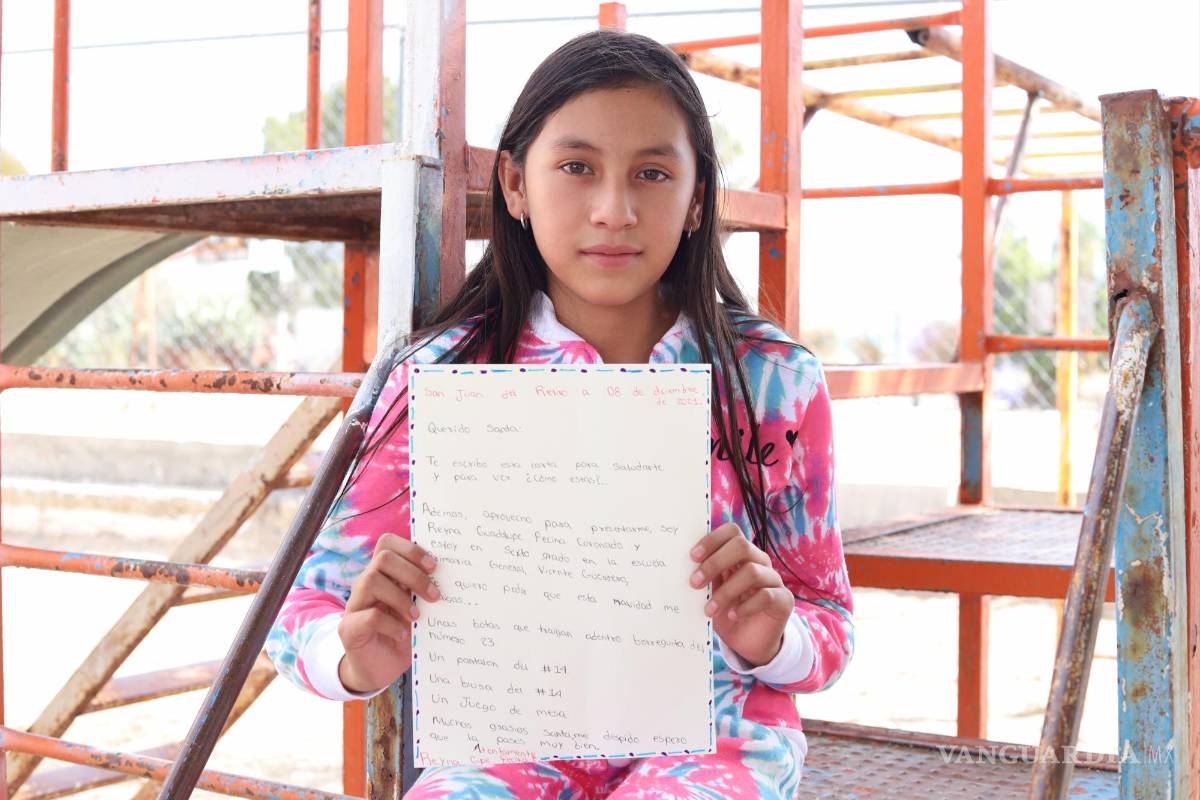 San Juan del Retiro a 08 de diciembre,
de 2021.
Querido Santa:
Te escribo esta carta para saludarte
y para ver ¿Cómo estas?..
Ademas, aprovecho para presentarme, soy
Reyna Guadalupe Pecina Coronado y
estoy en sexto grado en la escuela
rimaria General, Vicente Guerrero,
e quiero pedir que esta navidad me
igas...
Unas botas que traigan adentro borreguito del
número 23
Un pantalon del #14
Una blusa del #14
Un Juego de mesa
Muchas grasias santa,me despido espero
que la pases muy bien.
Atentamente
Reyna Gpe
VANGUARDIA MX